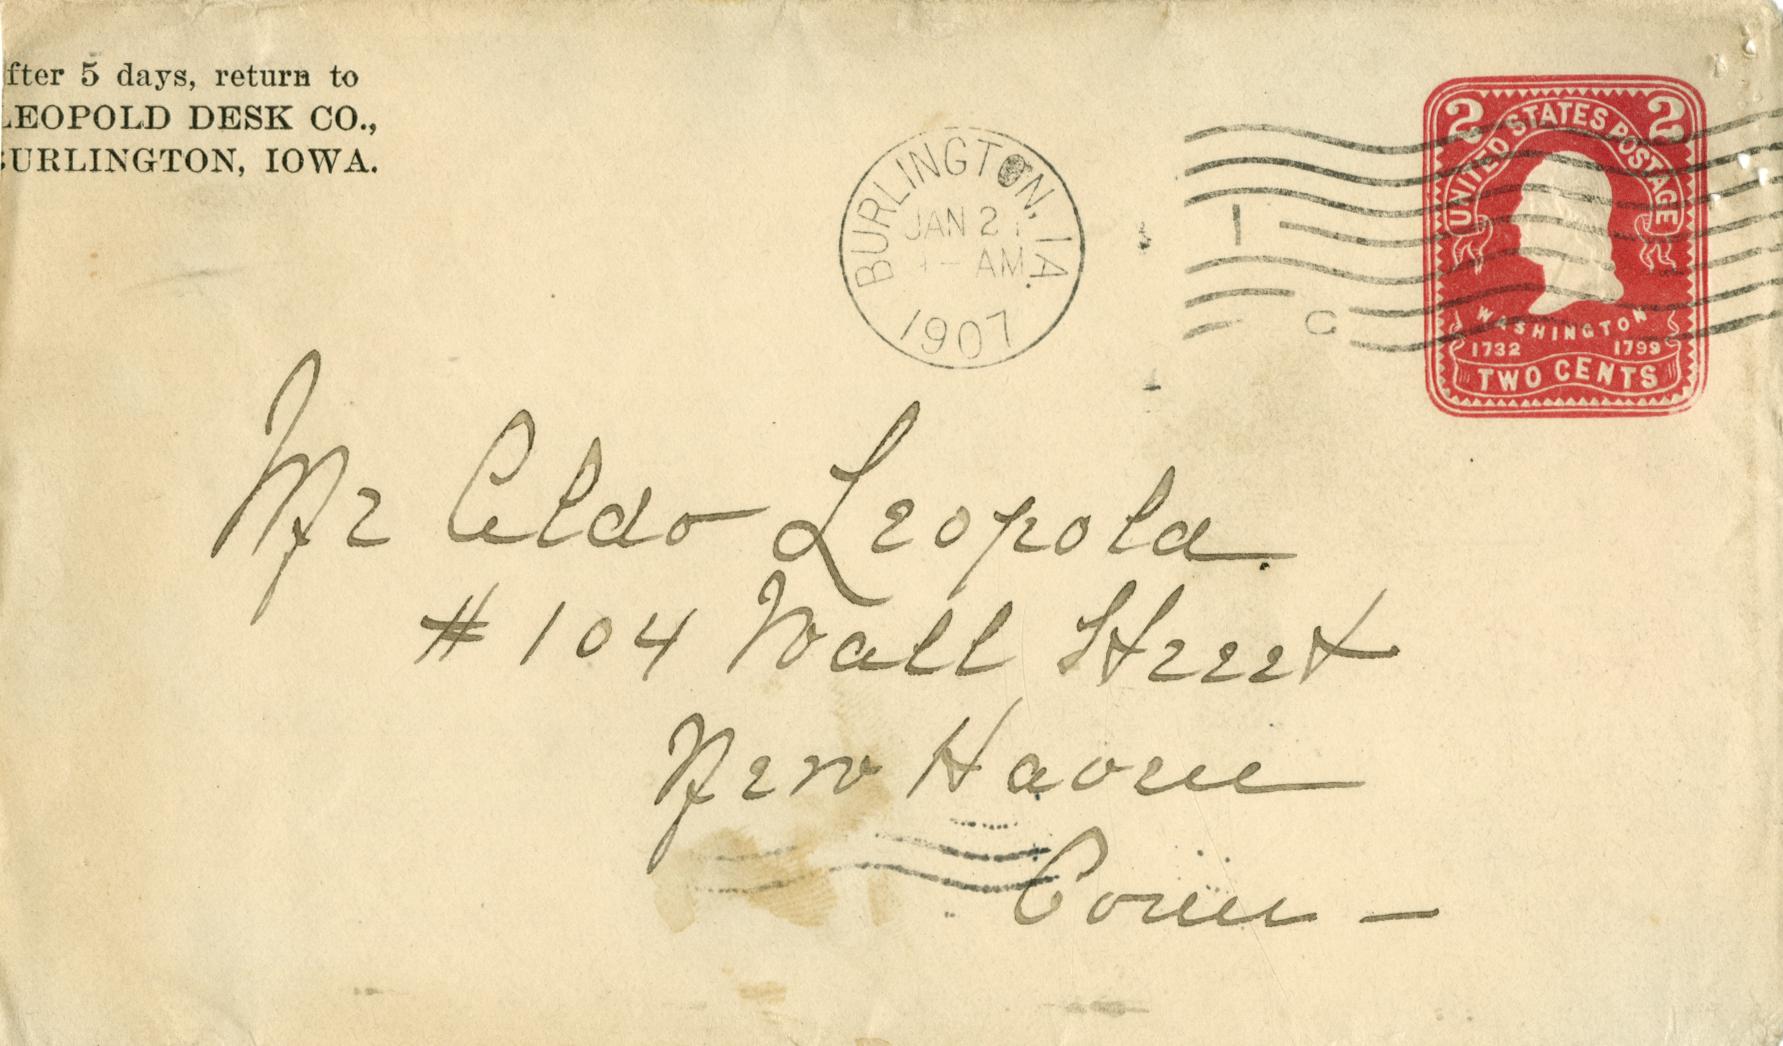 fter 5 days, return to
LEOPOLD DESK CO.,
BURLINGTON, IOWA.
BURLINGTON, IA.
JAN 21
AM
1907
1
C
2 2
UNITED STATES POSTAGE
WASHINGTON
1732 1799
TWO CENTS
Mr Aldo Leopold
# 104 Wall Street
New Haven
Conn —